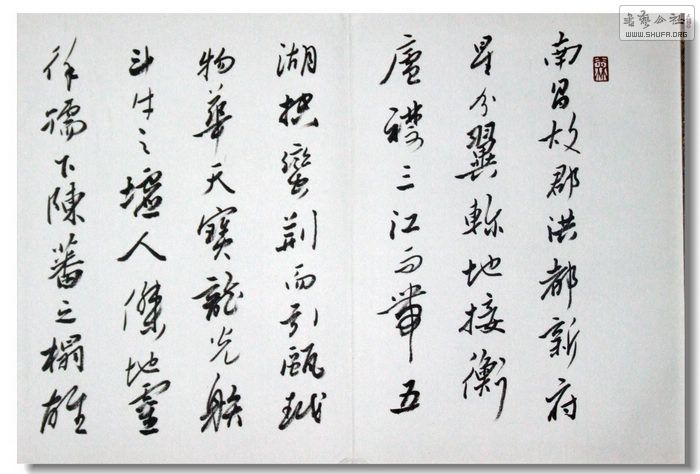 南昌故郡洪都新府
星分翼軫地接衡
廬襟三江而帶五
湖控蠻荊而引甌越
物華天寶龍光射
斗牛之墟人傑地靈
徐孺下陳蕃之榻雄
書藝公社
WWW.SHUFA.ORG